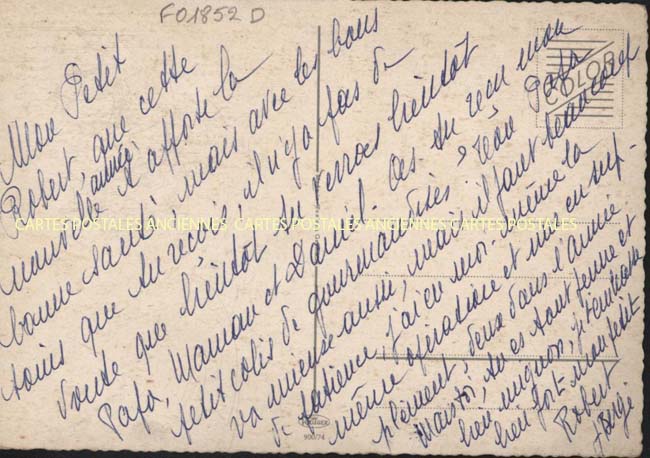 FO1852 D
Mon Petit
Robert, que cette
année
nouvelle t'apporte la
bonne santé, mais avec les bons
soins que tu reçois, il n'y a pas de
doute que bientôt tu verras bientôt
Papa, Maman et Daniel. As tu reçu mon
petit colis de gourmandises? Ton Papa
va mieux aussi, mais il faut beaucoup
de patience, j'ai eu moi-même la
même opération et moi en sup-
plément, deux dans l'année
Mais toi, tu es tout jeune et
bien mignon, je t'embrasse
bien fort mon petit
Robert
COLOR
CARTES POSTALES ANCIENNES CARTES POSTALES ANCIENNES CARTES POSTALES
900/74